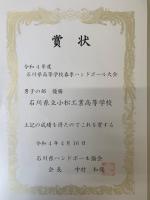 賞状
令和4年度
石川県高等学校春季ハンドボール大会
男子の部 優勝
石川県立小松工業高等学校
上記の成績を得たのでこれを賞する
令和4年4月10日
石川県ハンドボール協会
会長 中村